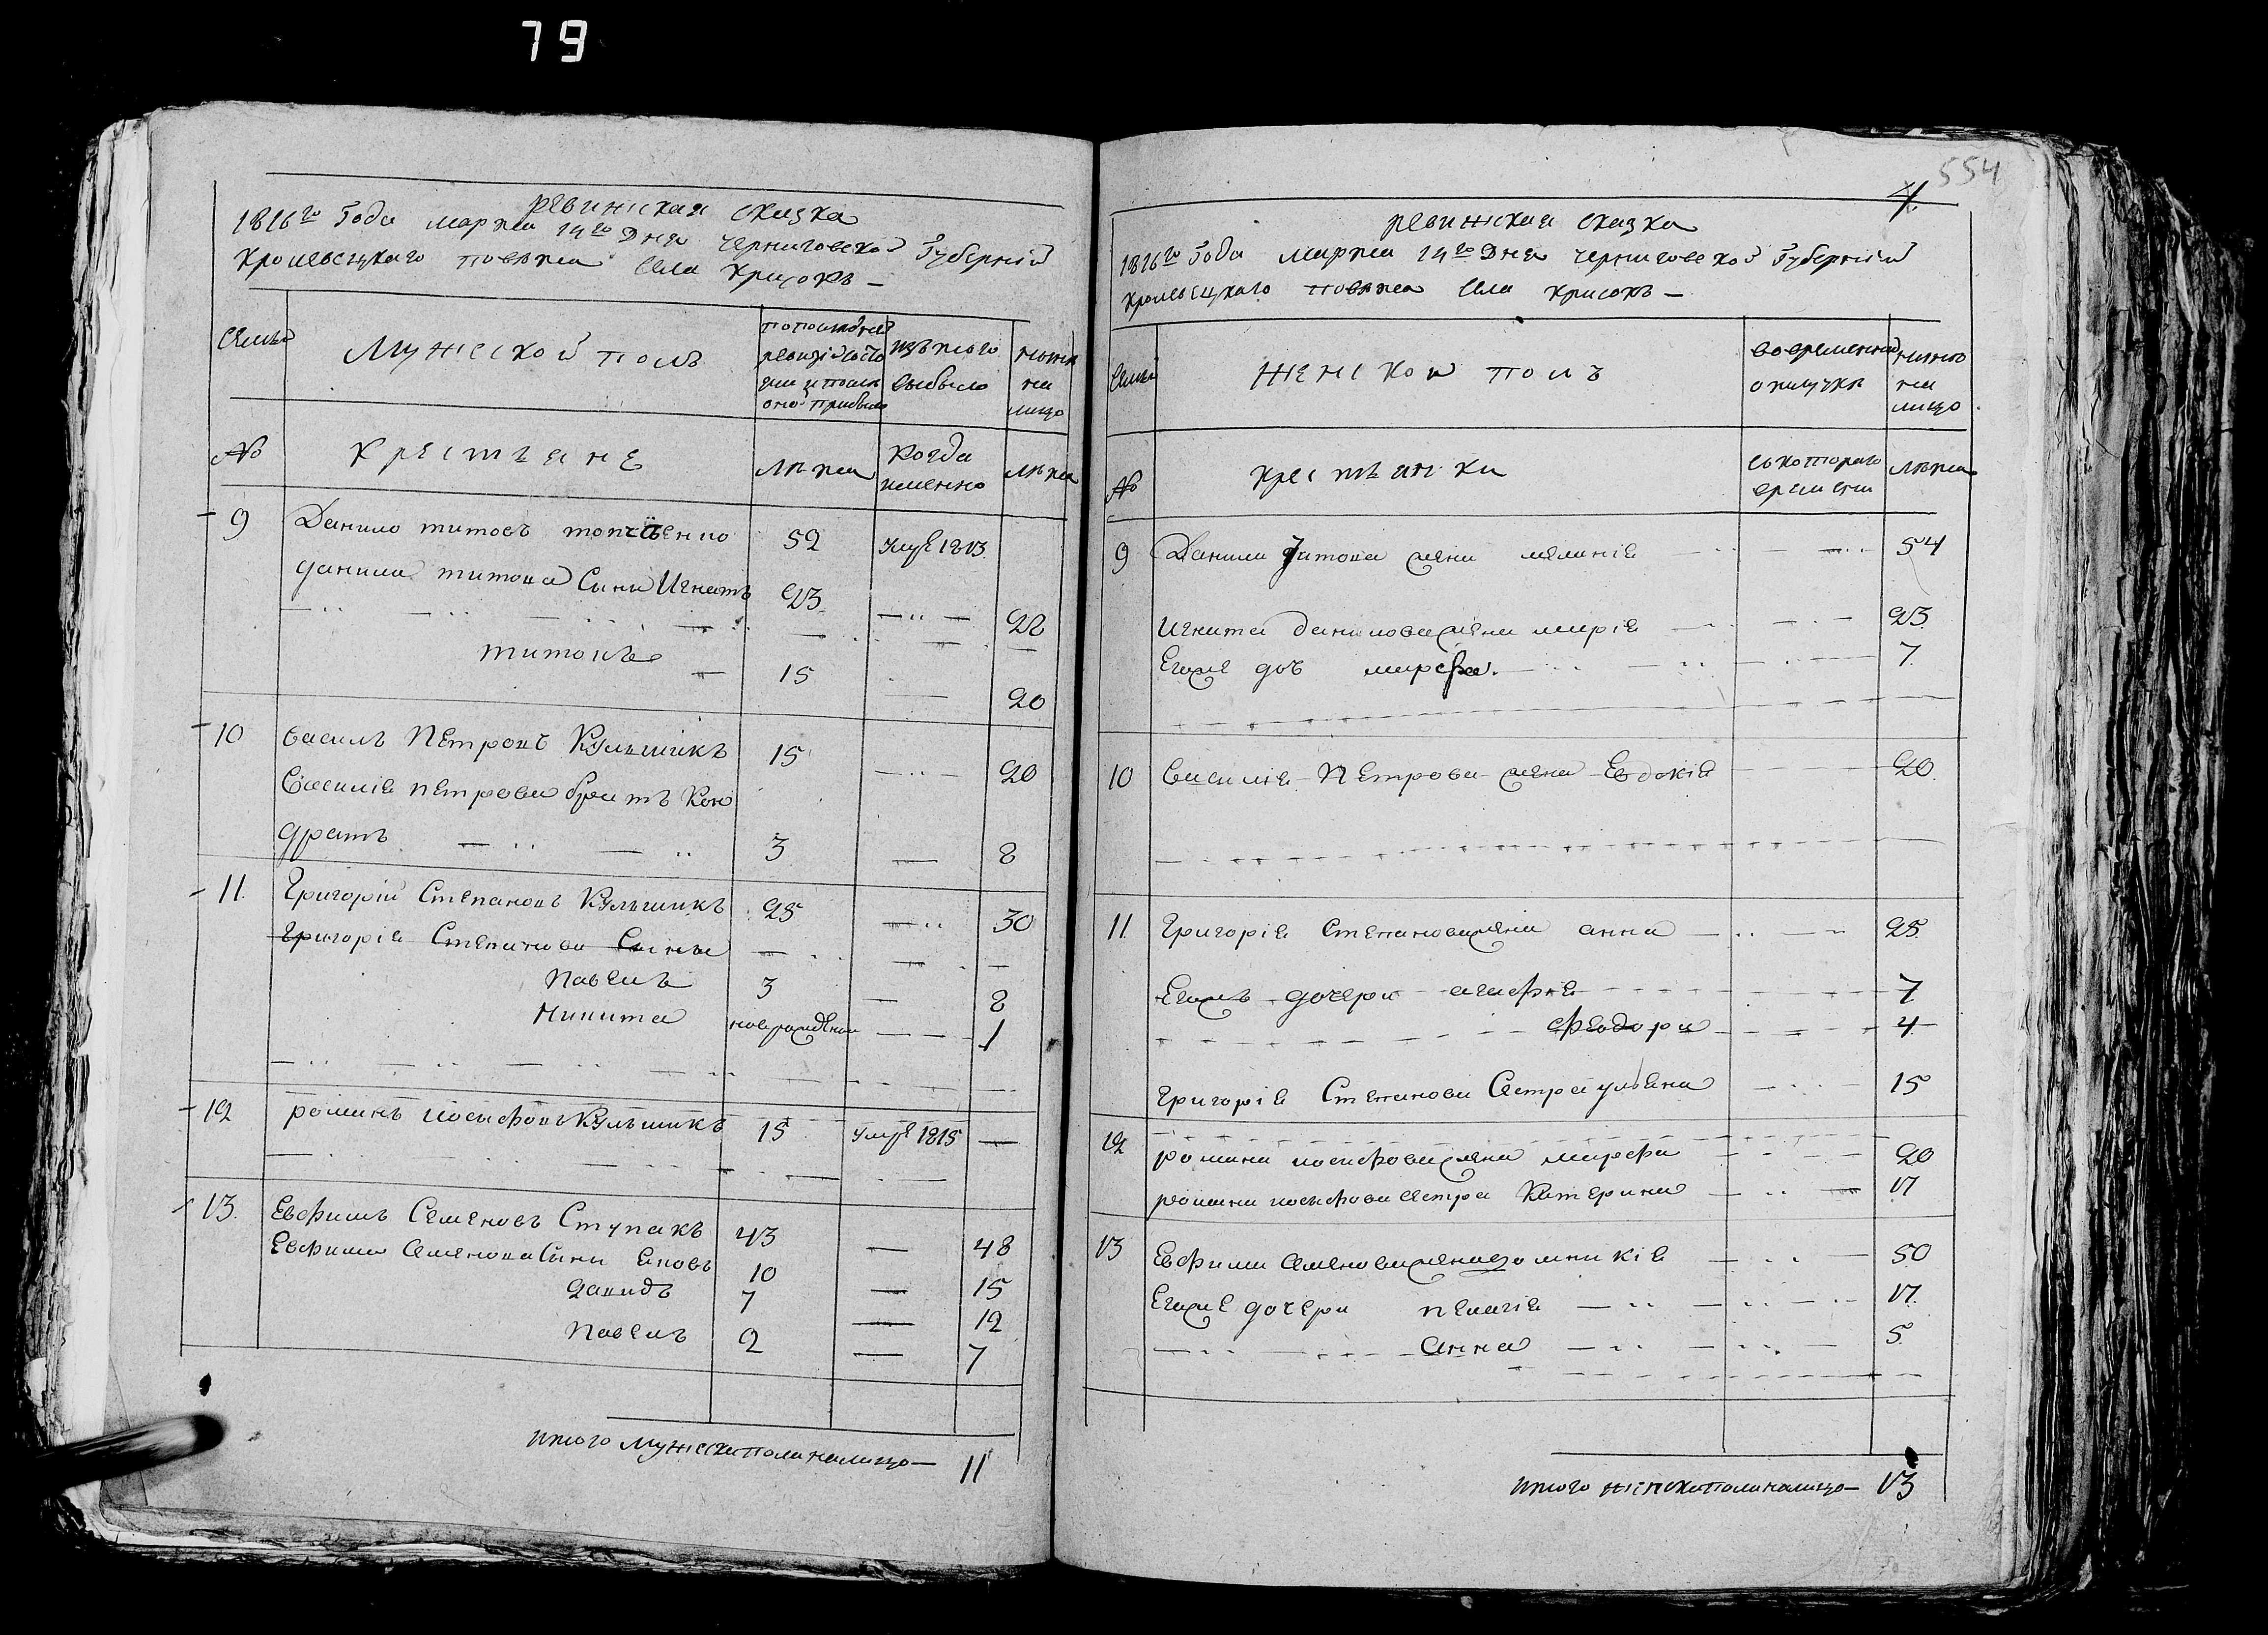 79
ревижская сказка
1816го Года марта 14го Дня Черниговской Губерніи
Кролевецкаго повѣта Села Крисокъ —
Семьи
Мужеской полъ
по последней ревизіи состо яли и после оной прибыло
изъ того выбыло
ныне на лицо
№
Крестьяне
лѣта
Когда именно
лѣта
9 Данило титовъ 52 умре 1813
данила титова Сыны Игнатъ 23 22
титокъ 15 20
10 Василъ Петровъ Кулшикъ 15 20
Василія петрова братъ Кон
дратъ 3 8
11 Григорій Степановъ Кулшикъ 25 30
Григорія Степанова Сыны
Павелъ 3 8
Никита новорожденъ 1
12 романъ иосифовъ Кулшикъ 15 умре 1815 —
13 Евфимъ Семеновъ Ступакъ 43 — 48
Евфима Семенова Сыны Яковъ 10 — 15
Давидъ 7 — 12
Павелъ 2 — 7
итого мужеска пола налицо — 11
554
4
ревижская сказка
1816го Года марта 14го Дня Черниговской Губерніи
Кролевецкаго повѣта Села Крисокъ —
Семьи
Женской полъ
во временной отлучкѣ
ныне на лицо
№
крестьянки
съ котораго времени
лѣта
9 Данила Титова жена меланія 54
Игната данилова жена марія 23
Егоже дочъ марфа 7
10 Василія Петрова жена Евдокія 20
11 Григорія Степанова жена анна 25
Егожъ дочери агафія 7
Феодора 4
Григорія Степанова Сестра ульяна 15
12 романа иосифова жена марфа 20
романа иосифова Сестра Катерина 17
13 Евфима Семенова жена домникія 50
Егоже дочери пелагія 17
анна 5
итого женска пола налицо — 13